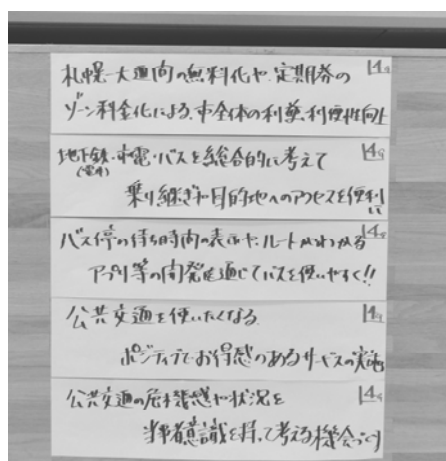 札幌-大通間の無料化や、定期券の 14g
ゾーン料金化による、市全体の利益、利便性向上
地下鉄・市電・バスを総合的に考えて 14g
(電車)
乗り継ぎや目的地へのアクセスを便利に
バス停の待ち時間の表示や、ルートがわかる 14g
アプリ等の開発を通じてバスを使いやすく!!
公共交通を使いたくなる 14g
ポジティブでお得感のあるサービスの実施
公共交通の危機感や状況を 14g
当事者意識を持って考える機会づくり